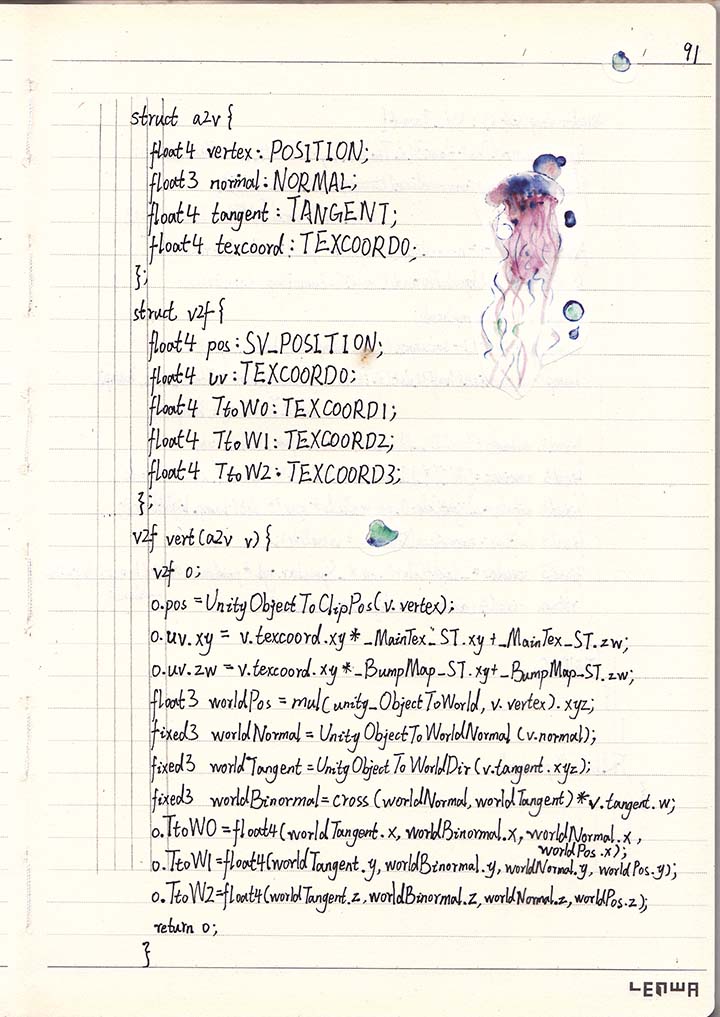 91
struct a2v {
float4 vertex : POSITION;
float3 normal : NORMAL;
float4 tangent : TANGENT;
float4 texcoord : TEXCOORD0;
};
struct v2f {
float4 pos : SV_POSITION;
float4 uv : TEXCOORD0;
float4 TtoW0 : TEXCOORD1;
float4 TtoW1 : TEXCOORD2;
float4 TtoW2 : TEXCOORD3;
};
v2f vert(a2v v) {
v2f o;
o.pos = UnityObjectToClipPos(v.vertex);
o.uv.xy = v.texcoord.xy * _MainTex_ST.xy + _MainTex_ST.zw;
o.uv.zw = v.texcoord.xy * _BumpMap_ST.xy + _BumpMap_ST.zw;
float3 worldPos = mul(unity_ObjectToWorld, v.vertex).xyz;
fixed3 worldNormal = UnityObjectToWorldNormal(v.normal);
fixed3 worldTangent = UnityObjectToWorldDir(v.tangent.xyz);
fixed3 worldBinormal = cross(worldNormal, worldTangent) * v.tangent.w;
o.TtoW0 = float4(worldTangent.x, worldBinormal.x, worldNormal.x,
worldPos.x);
o.TtoW1 = float4(worldTangent.y, worldBinormal.y, worldNormal.y, worldPos.y);
o.TtoW2 = float4(worldTangent.z, worldBinormal.z, worldNormal.z, worldPos.z);
return o;
}